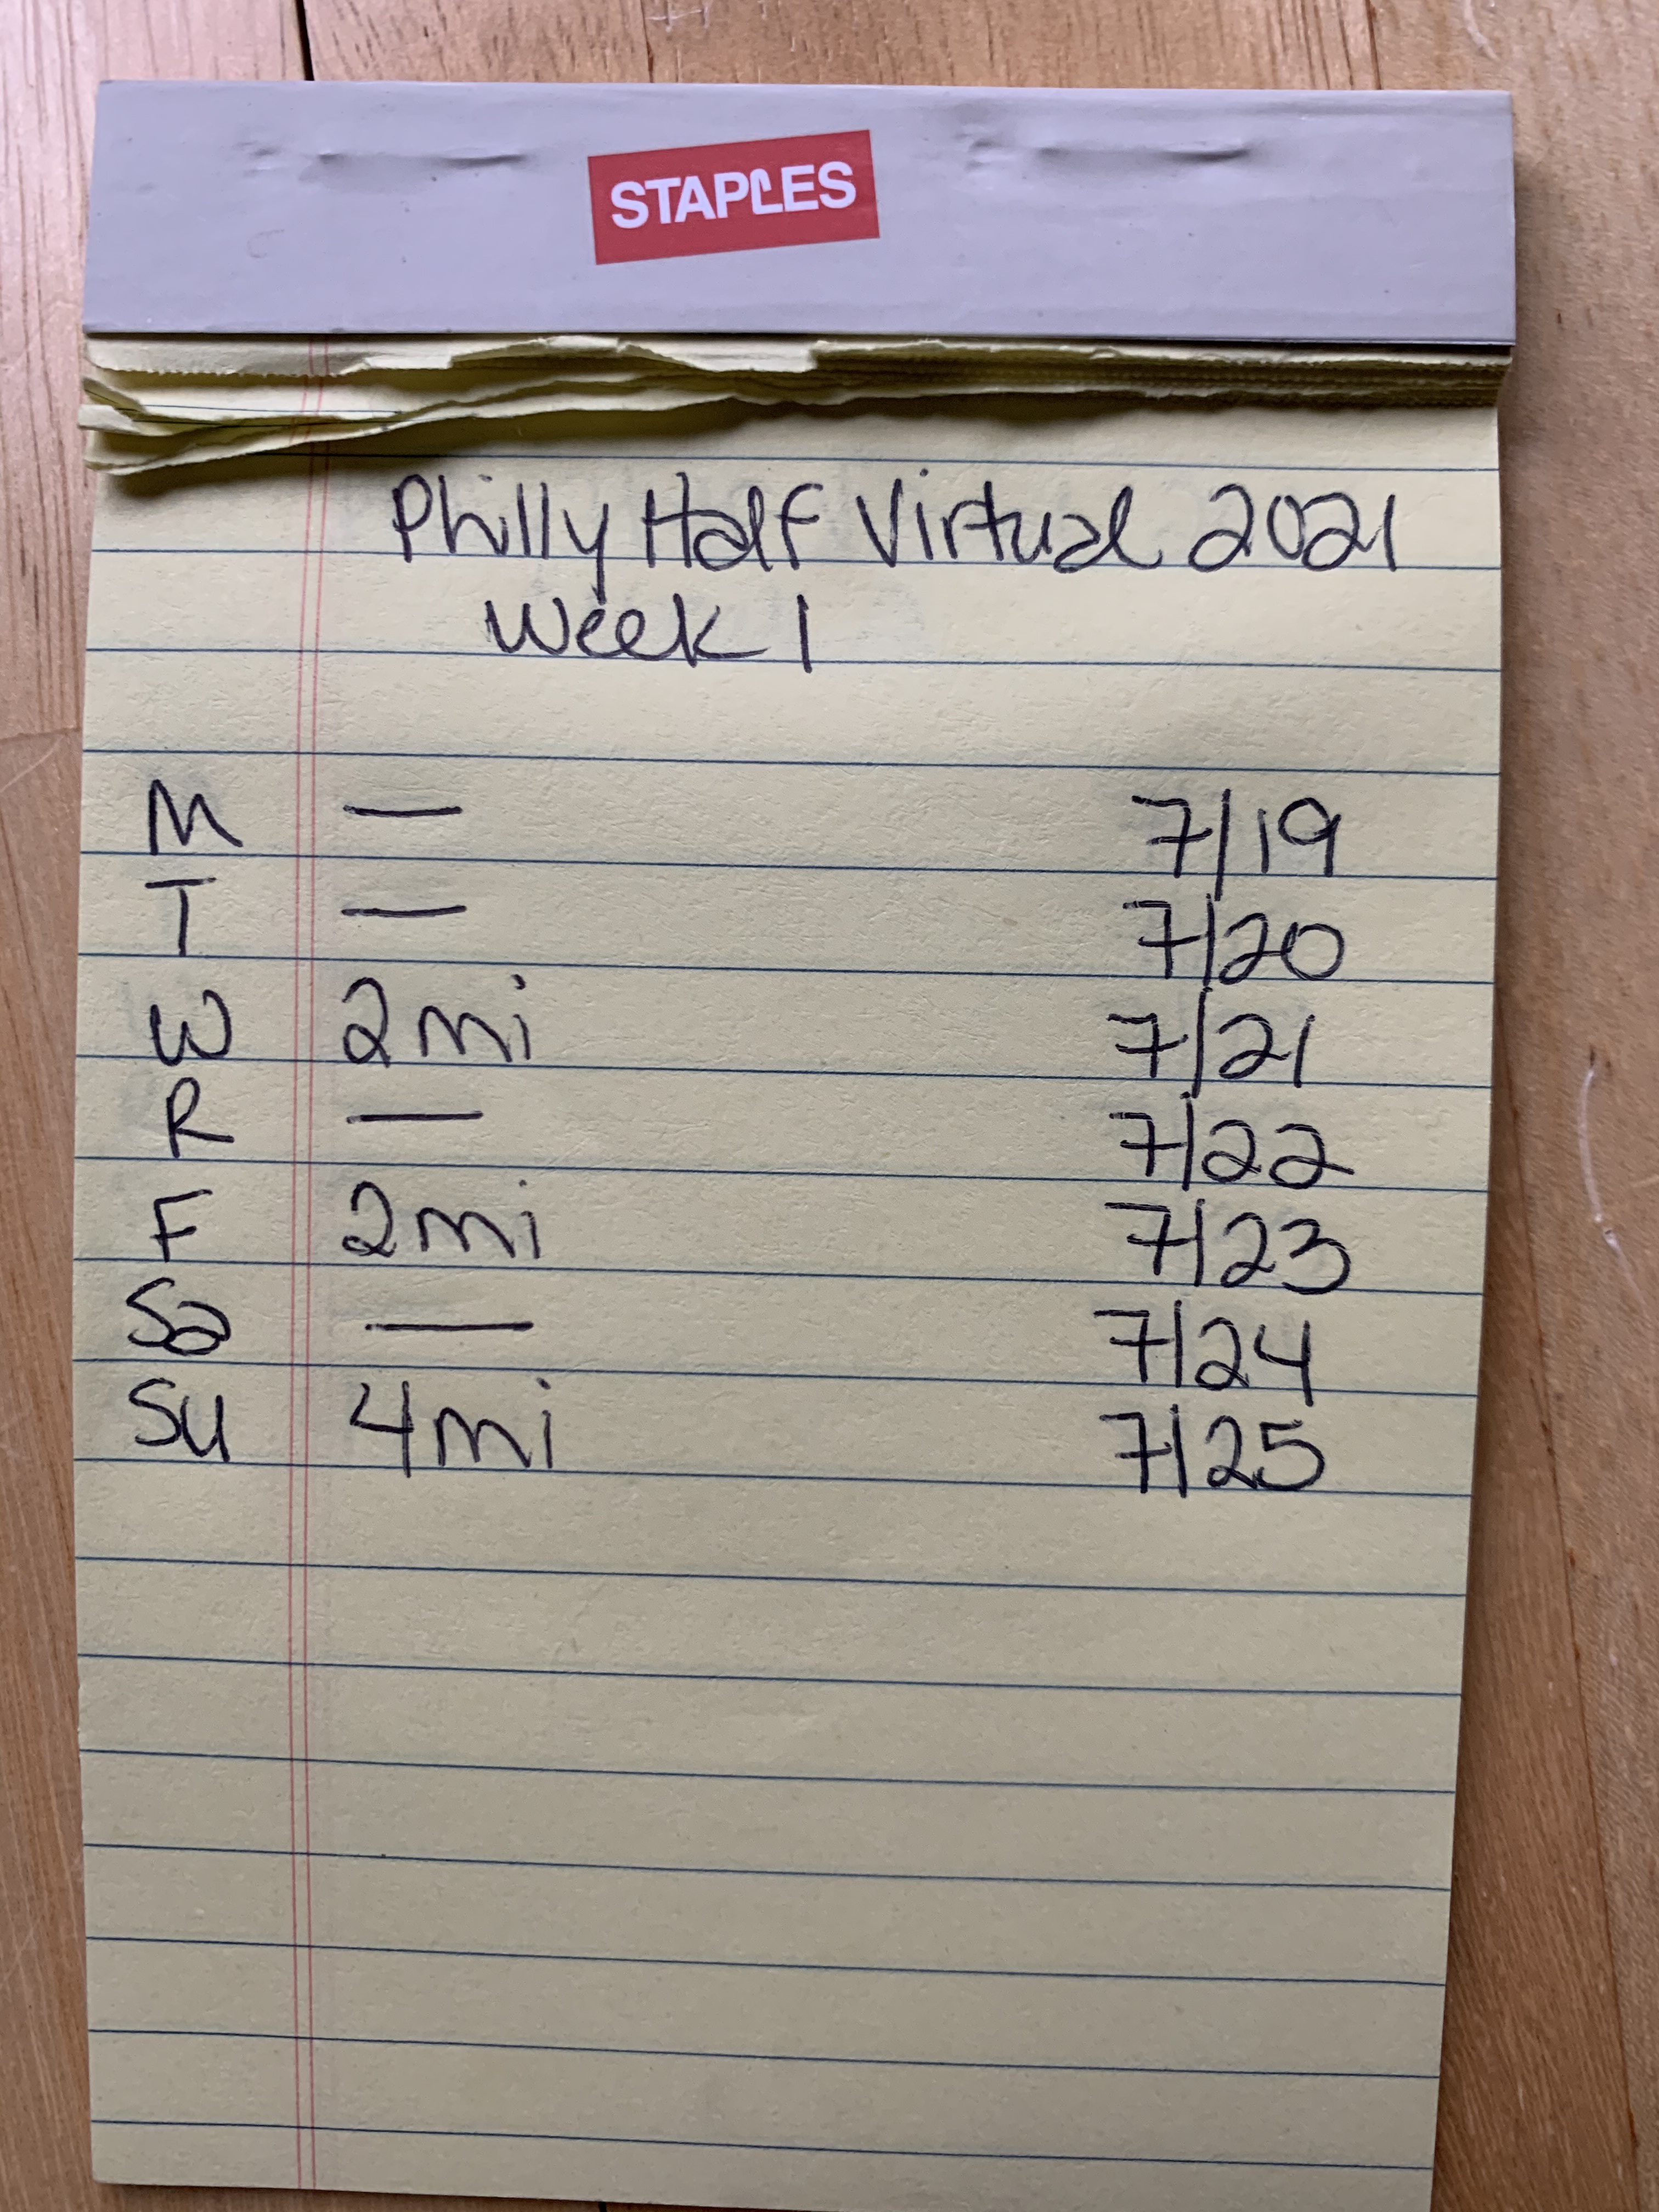 STAPLES
Philly Half Virtual 2021
Week 1
M — 7/19
T — 7/20
W 2mi 7/21
R — 7/22
F 2mi 7/23
Sa — 7/24
Su 4mi 7/25